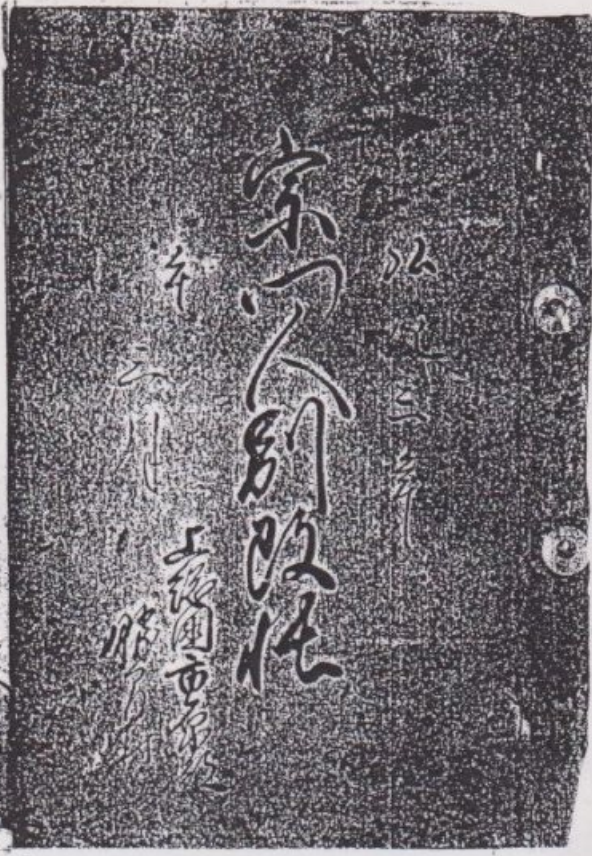 弘化三年
宗門人別改帳
午 三月
上総国市原郡
勝間村